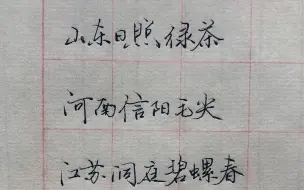 山东日照绿茶
河南信阳毛尖
江苏洞庭碧螺春